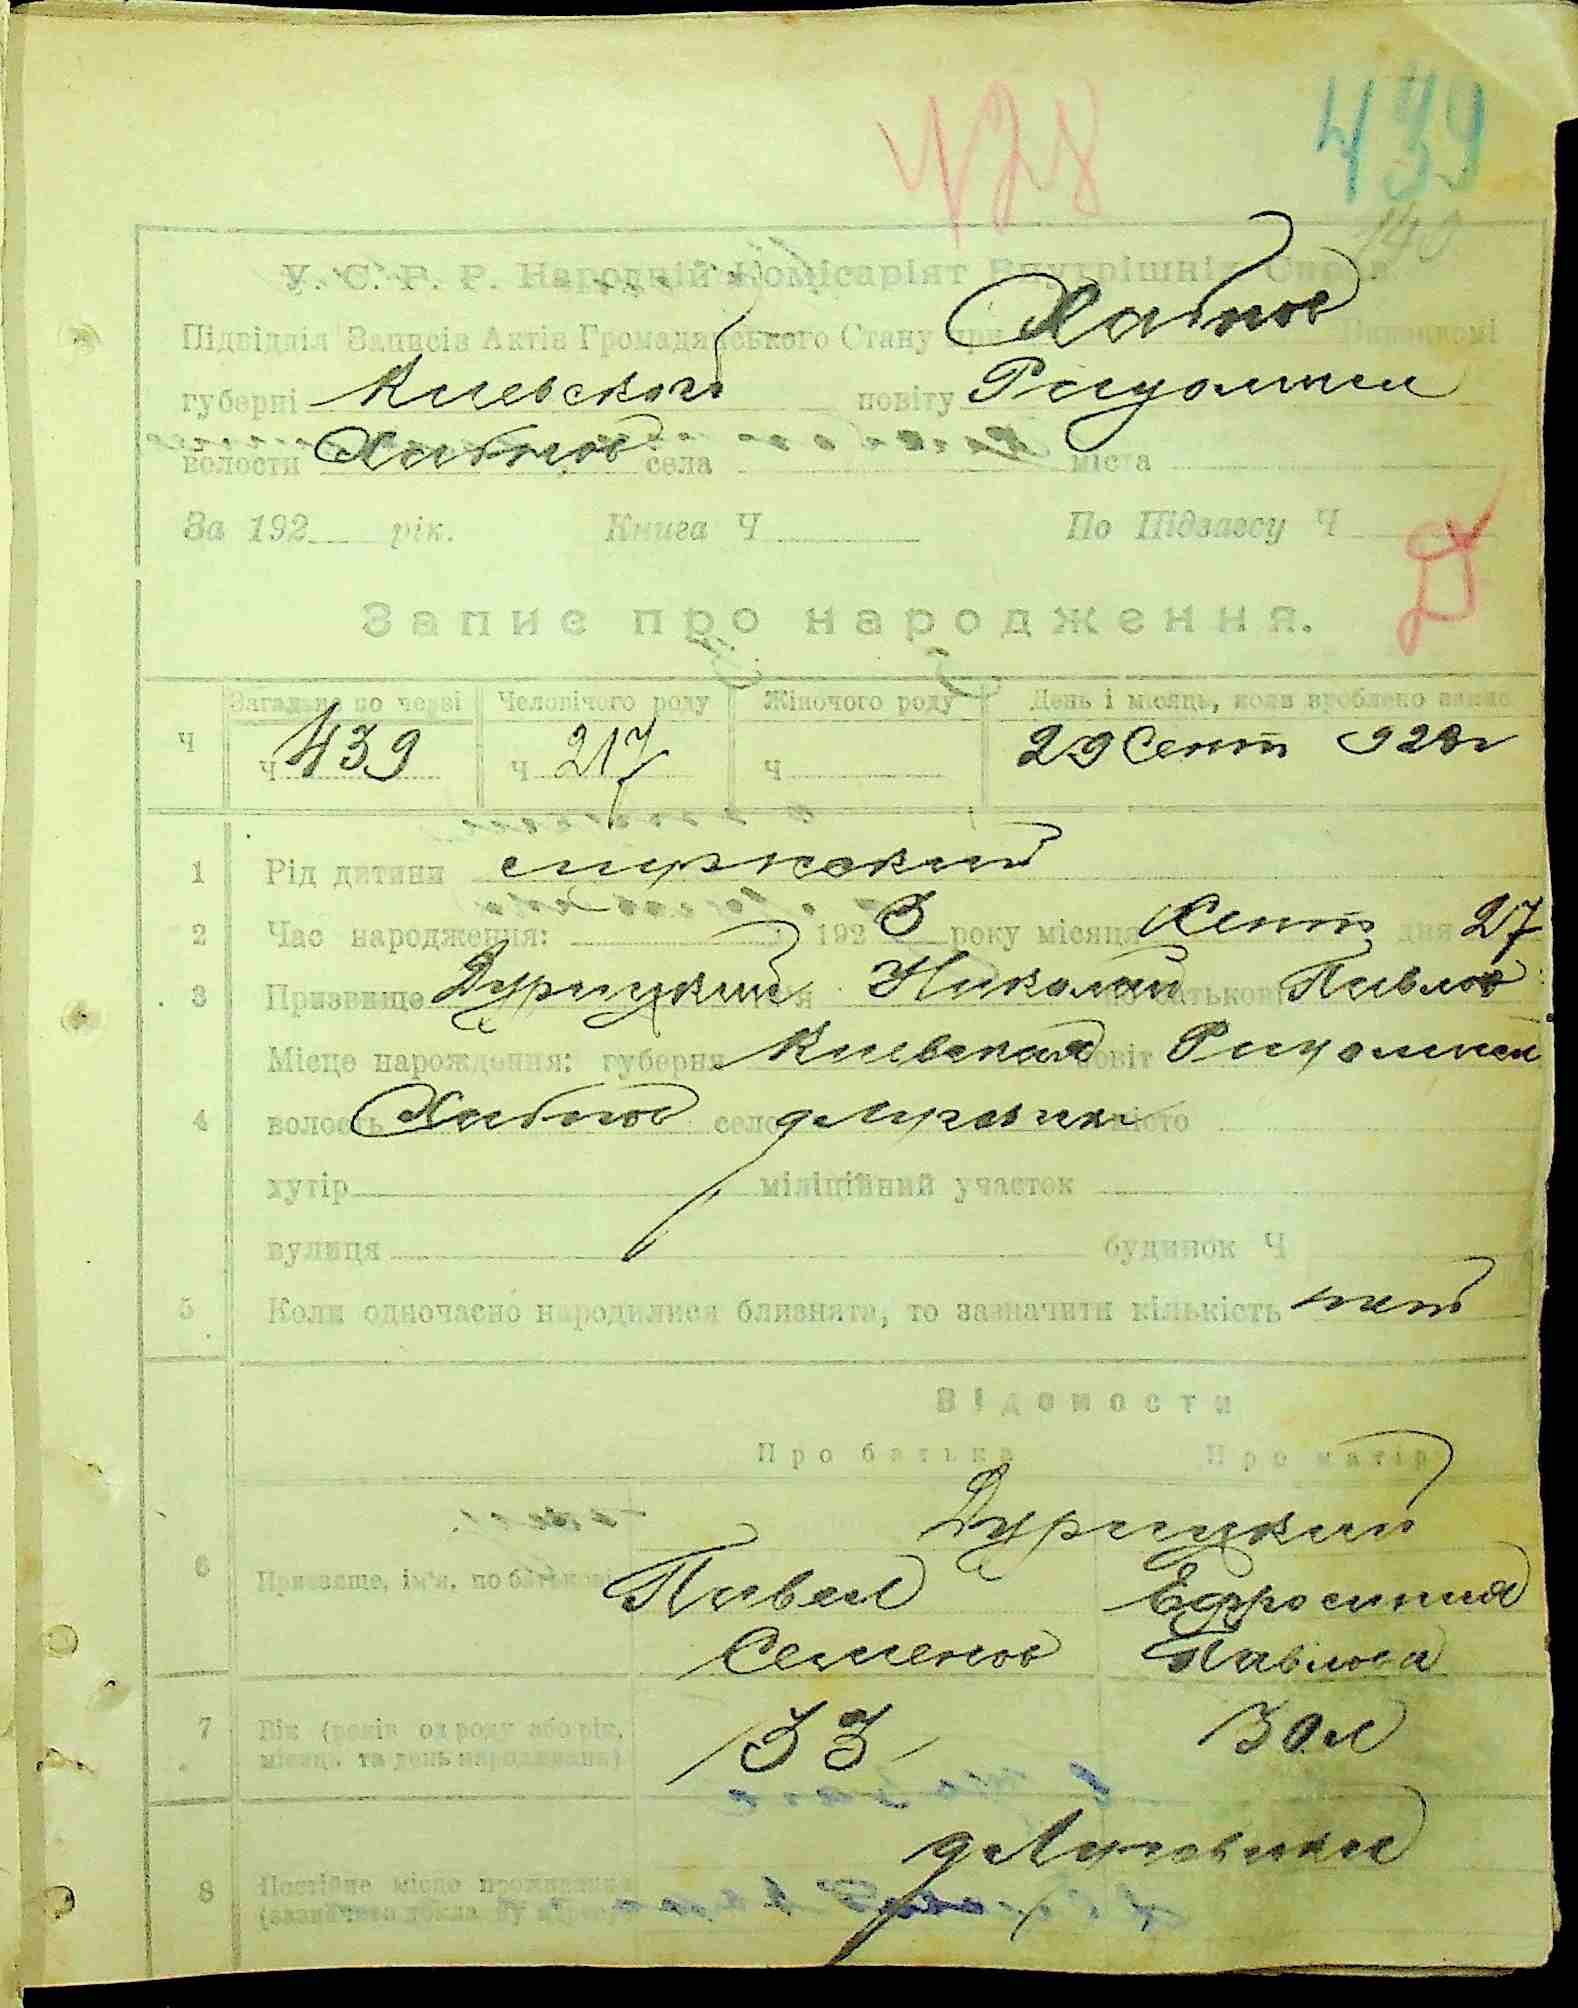 428 439
140
У. С. Р. Р. Народній Комісаріят Внутрішніх Справ.
Підвідділ Записів Актів Громадянського Стану при Хабнов Виконкомі
губерні Киевской повіту Радомысл
волости Хабнов села міста
За 192 рік. Книга Ч По Підзагсу Ч
Запис про народження.
Загальне по черзі Чоловічого роду Жіночого роду День і місяць, коли зроблено запис
Ч ч 439 ч 217 ч 29 Сент 923 г
1 Рід дитини мужский
2 Час народження: 192 3 року місяця Сент дня 27
3 Призвище Дурицкий ім'я Николай по батькові Павлов
Місце нарождення: губерня Киевская повіт Радомысл
4 волость Хабнов село д Луговики місто
хутір міліційний участок
вулиця будинок Ч
5 Коли одночасно народилися близнята, то зазначити кількість нет
Відомости
Про батька Про матір
Дурицкий
6 Призвище, ім'я, по батькові Павел Ефросиния
Семенов Павлова
7 Вік (років од роду або рік, 33 30 л
місяць та день народження)
д Луговики
8 Постійне місце проживання